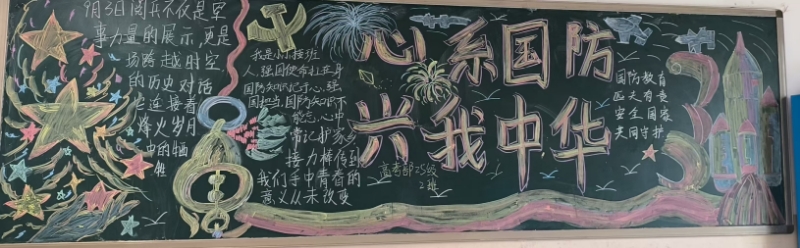 9月3日阅兵不仅是军
事力量的展示,更是
场跨越时空
的历史对话
它连接着
烽火岁月
中的牺
牲
我是小小接班
人,强国使命扛在身
国防知识记于心,强
国担当,国防知识不
能忘心中
常记
接力棒传到
我们手中青春的
意义从未改变
心系国防
兴我中华
高考部25级
2班
国防教育
匹夫有责
安全国家
共同守护